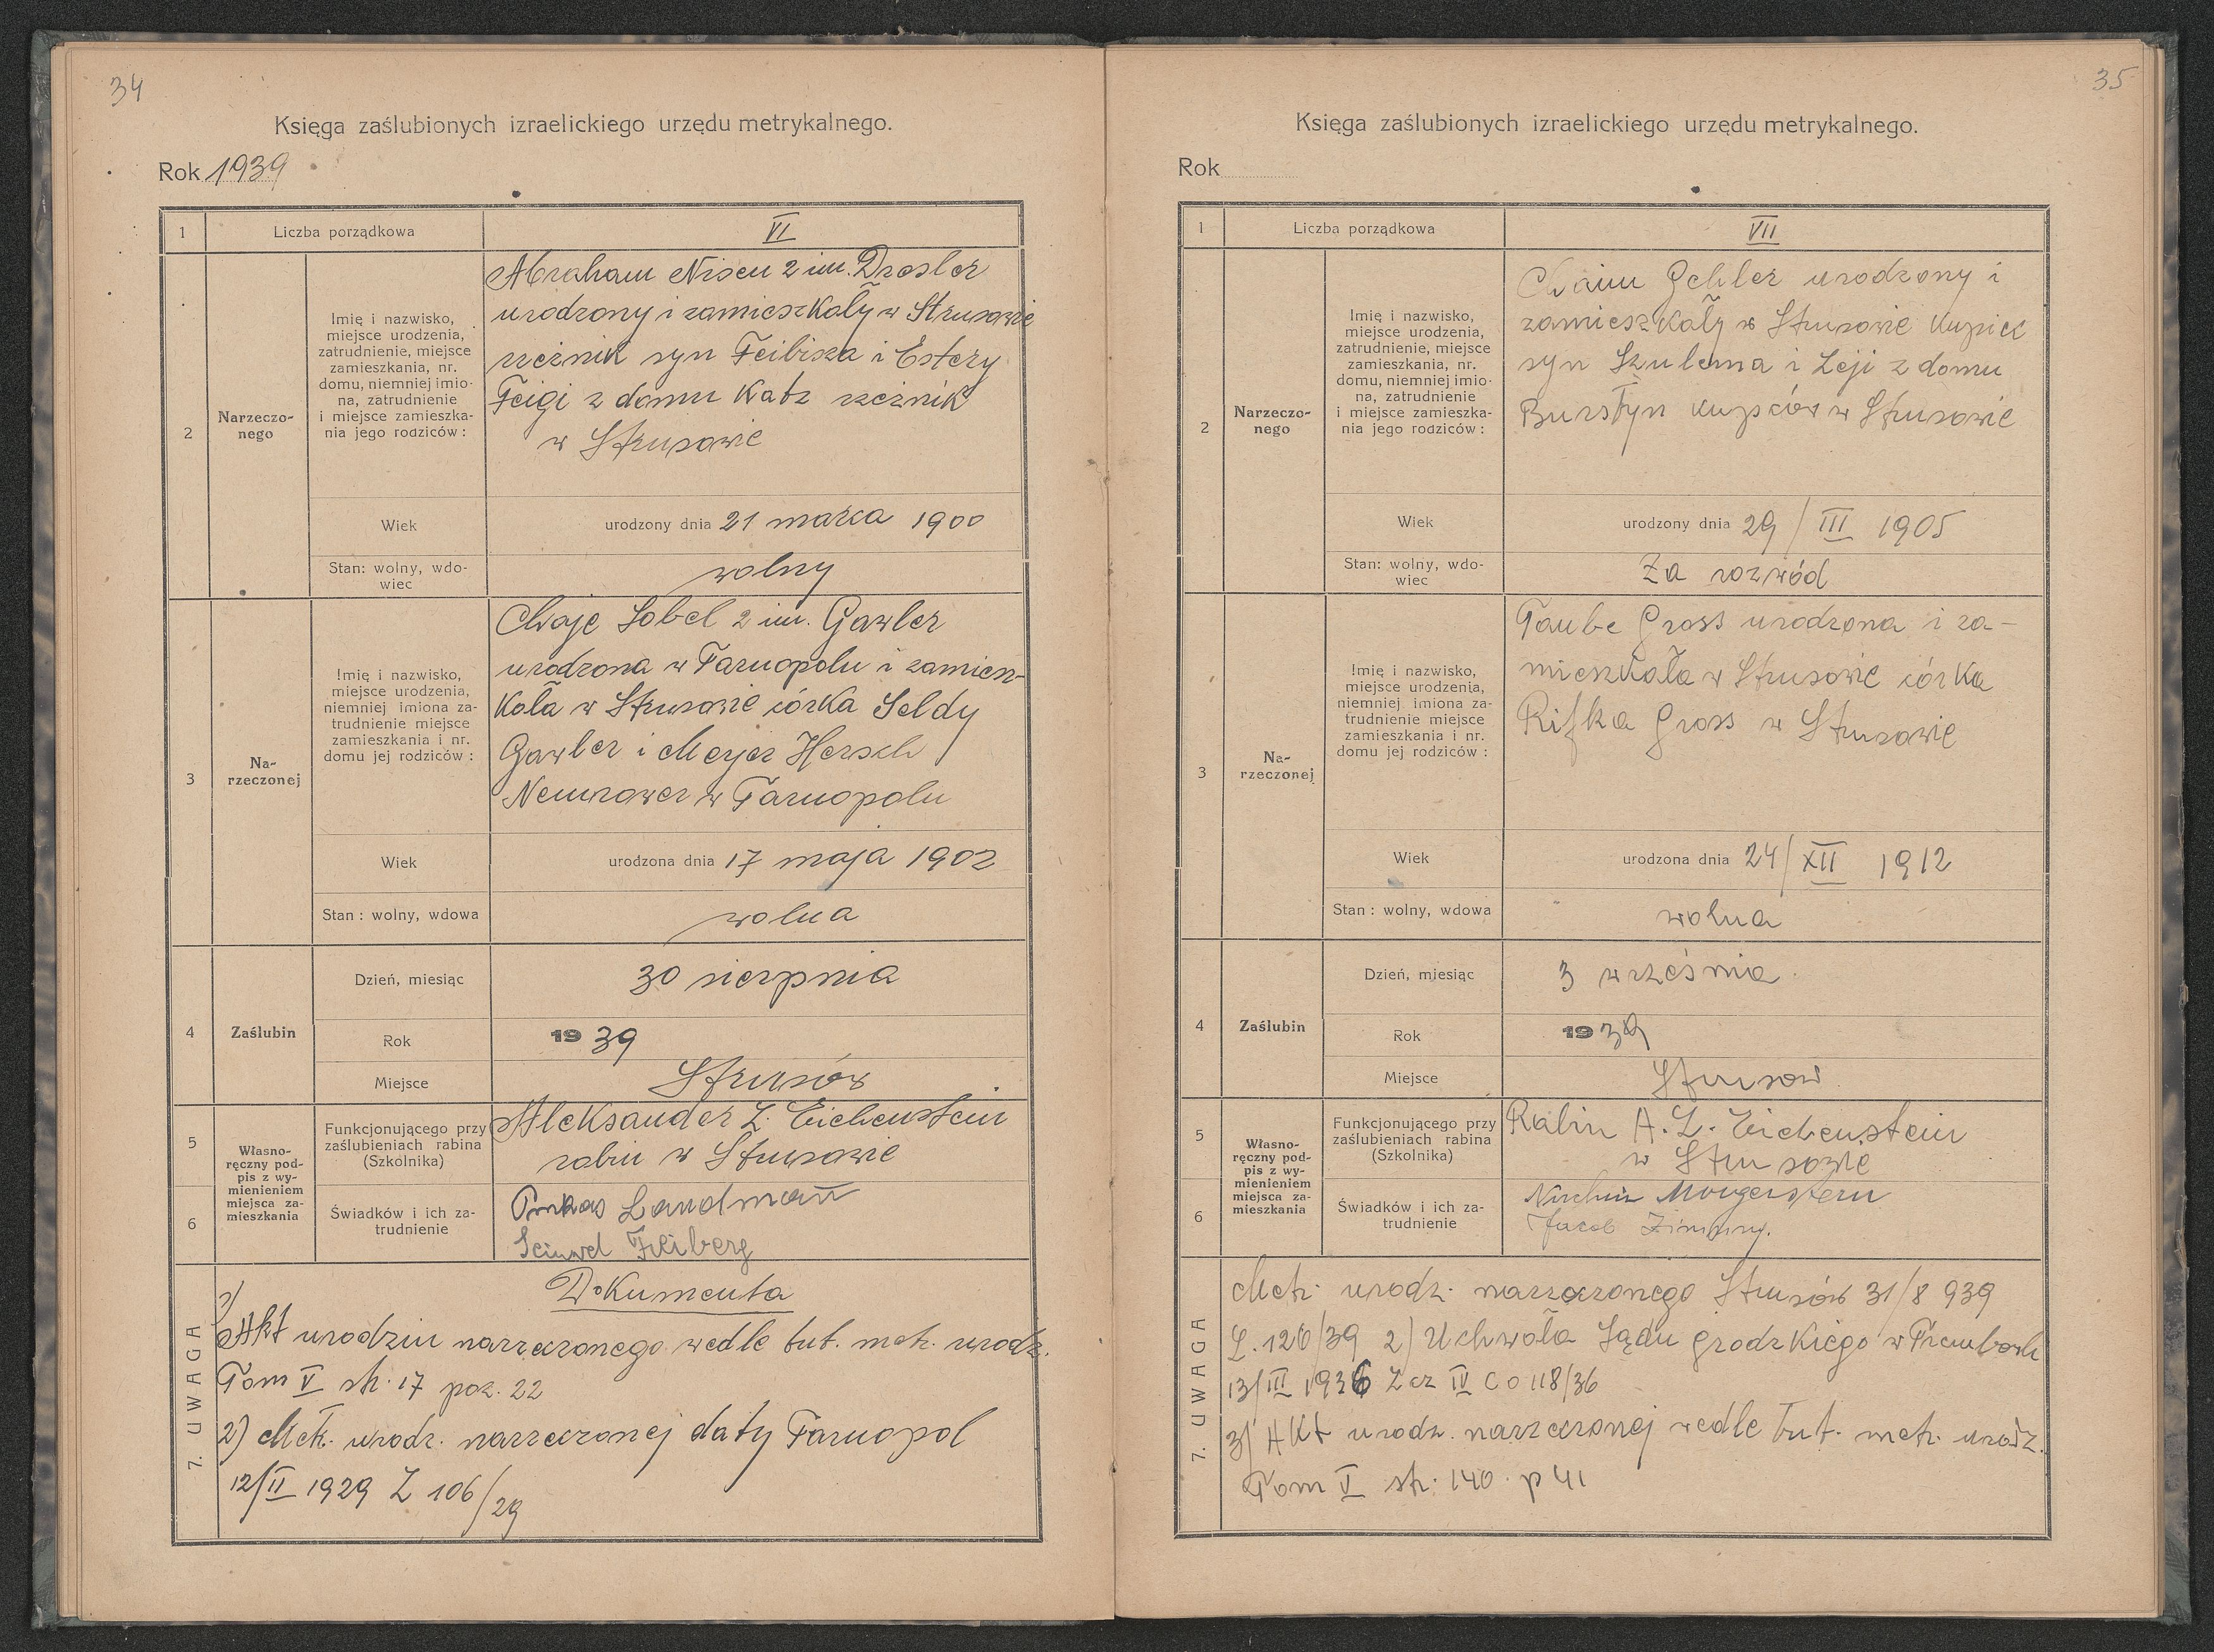 34
Księga zaślubionych izraelickiego urzędu metrykalnego.
Rok 1939
1
Liczba porządkowa
VI
2
Narzeczo-
nego
Imię i nazwisko,
miejsce urodzenia,
zatrudnienie, miejsce
zamieszkania, nr.
domu, niemniej imio-
na, zatrudnienie
i miejsce zamieszka-
nia jego rodziców:
Abraham Nisen 2 im. Drosler
urodzony i zamieszkały w Strusowie
rzeźnik syn Feibisza i Estery
Feigi z domu Katz rzeźnik
w Strusowie
Wiek
urodzony dnia 21 marca 1900
Stan: wolny, wdo-
wiec
wolny
3
Na-
rzeczonej
Imię i nazwisko,
miejsce urodzenia,
niemniej imiona za-
trudnienie miejsce
zamieszkania i nr.
domu jej rodziców:
Chaje Sobel 2 im. Gawler
urodzona w Tarnopolu i zamiesz-
kała w Strusowie córka Seldy
Gawler i Meyer Hersch
Nemrower w Tarnopolu
Wiek
urodzona dnia 17 maja 1902
Stan: wolny, wdowa
wolna
4
Zaślubin
Dzień, miesiąc
30 sierpnia
Rok
1939
Miejsce
Strusów
5
Własno-
ręczny pod-
pis z wy-
mienieniem
miejsca za-
mieszkania
Funkcjonującego przy
zaślubieniach rabina
(Szkolnika)
Aleksander Z. Eichenstein
rabin w Strusowie
6
Świadków i ich za-
trudnienie
Pinkas Landman
Freiberg
7. UWAGA
Dokumenta
1)
Akt urodzin narzeczonego wedle tut. metr. urodz.
Tom V str. 17 poz. 22
2) Metr. urodz. narzeczonej daty Tarnopol
12/II 1929 L 106/29
35
Księga zaślubionych izraelickiego urzędu metrykalnego.
Rok
1
Liczba porządkowa
VII
2
Narzeczo-
nego
Imię i nazwisko,
miejsce urodzenia,
zatrudnienie, miejsce
zamieszkania, nr.
domu, niemniej imio-
na, zatrudnienie
i miejsce zamieszka-
nia jego rodziców:
Chaim Gehler urodzony i
zamieszkały w Strusowie kupiec
syn Szulema i Leji z domu
Bursztyn kupców w Strusowie
Wiek
urodzony dnia 29/III 1905
Stan: wolny, wdo-
wiec
Za rozwód
3
Na-
rzeczonej
Imię i nazwisko,
miejsce urodzenia,
niemniej imiona za-
trudnienie miejsce
zamieszkania i nr.
domu jej rodziców:
Taube Gross urodzona i za-
mieszkała w Strusowie córka
Rifka Gross w Strusowie
Wiek
urodzona dnia 24/XII 1912
Stan: wolny, wdowa
wolna
4
Zaślubin
Dzień, miesiąc
3 września.
Rok
1939
Miejsce
Strusow
5
Własno-
ręczny pod-
pis z wy-
mienieniem
miejsca za-
mieszkania
Funkcjonującego przy
zaślubieniach rabina
(Szkolnika)
Rabin A. Z. Eichenstein
w Strusowie
6
Świadków i ich za-
trudnienie
Morgenstern
Jacob
7. UWAGA
Metr. urodz. narzeczonego Strusów 31/8 939
L. 126/39 2) Uchwała Sądu grodzkiego w Trembowli
13/III 1936 L cz IV Co 118/36
3) Akt urodz. narzeczonej wedle tut. metr. urodz.
Tom V str. 140 p 41